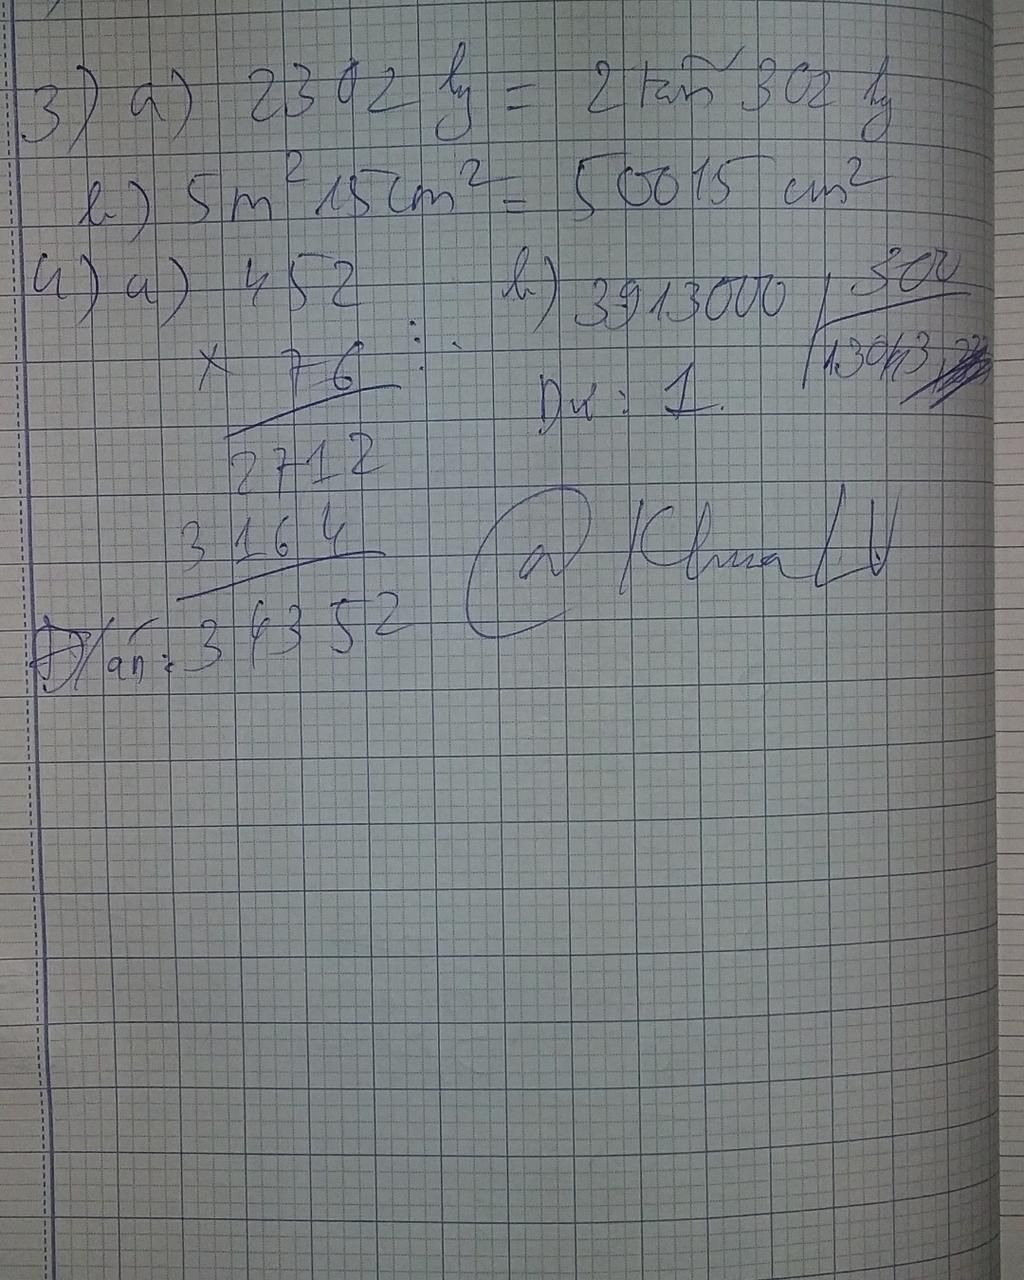 3) a) 2302 kg = 2 tấn 302 kg
b) 5 m² 15 cm² = 50015 cm²
4) a) 452
× 76
2712
3164
Đ/án: 34352
b) 3913000 | 300
13043
Dư: 1.